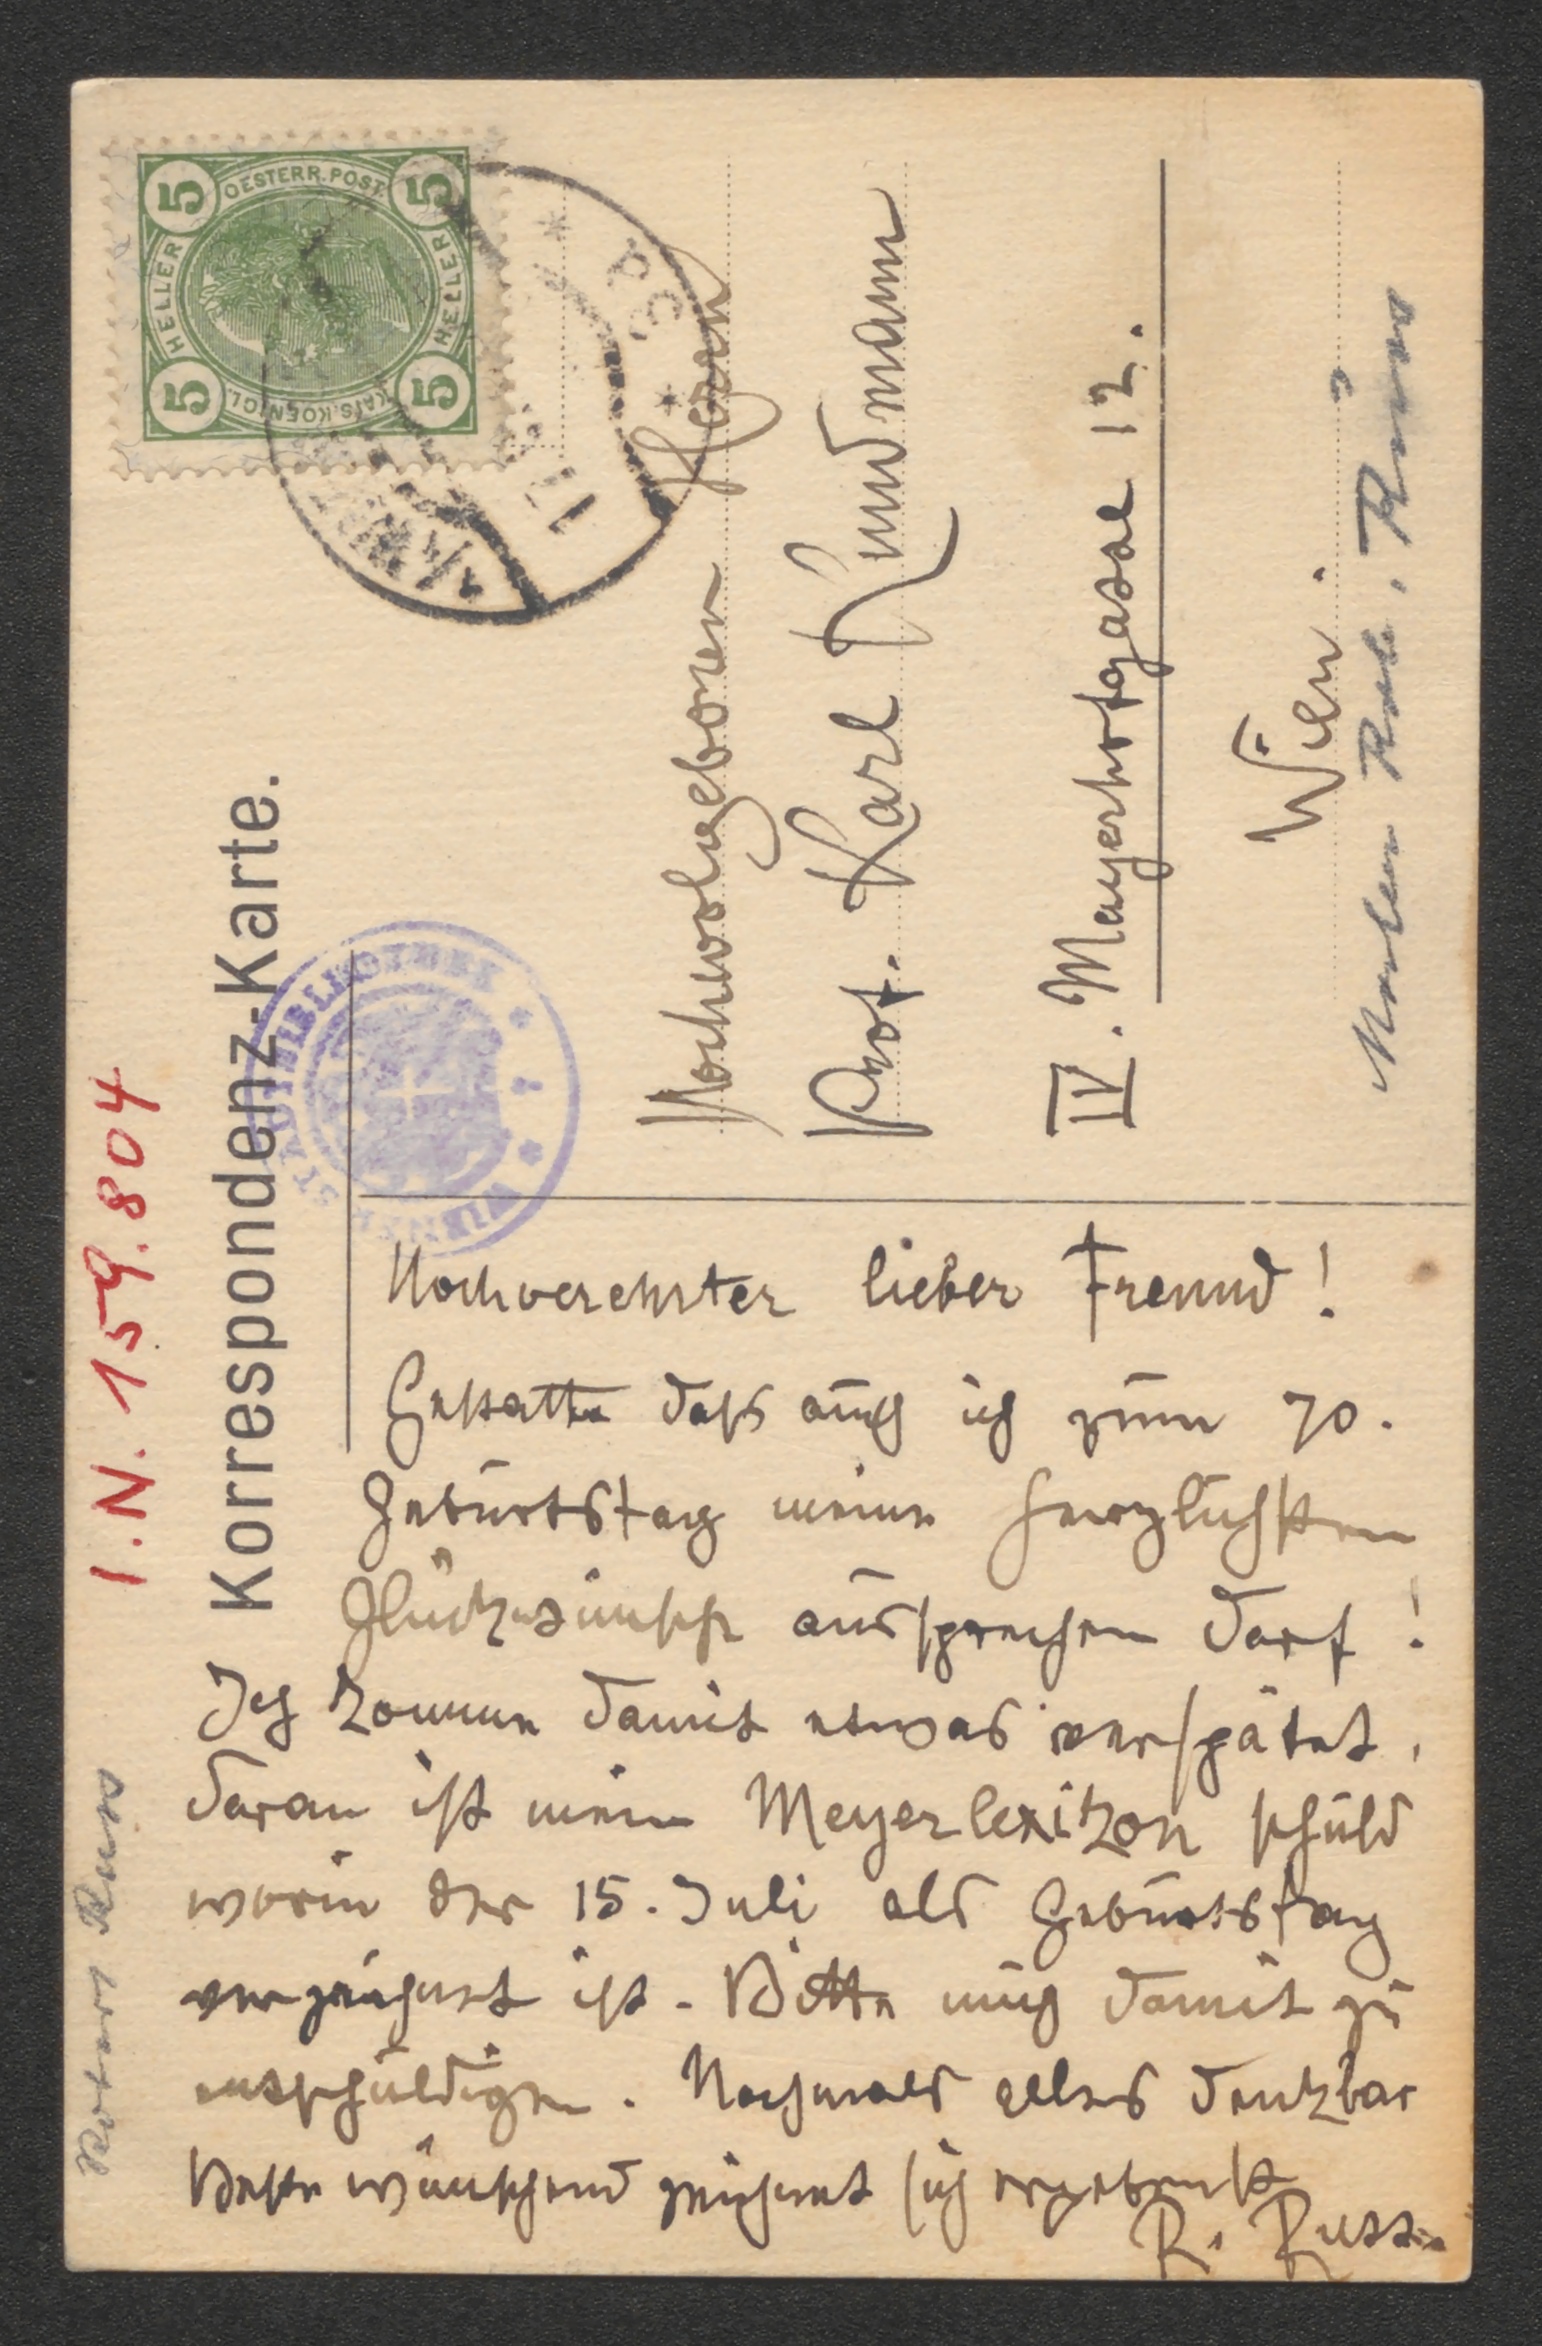 I.N. 159.804
Korrespondenz-Karte.
5 OESTERR. POST. 5
HELLER HELLER
5 KAIS. KOENIGL. 5
WIENER STADTBIBLIOTHEK
Hochwohlgeboren Herrn
Prof. Karl Kundmann
IV. Mayerhofgasse 12.
Wien.
Maler Rob. Russ
Hochverehrter lieber Freund!
Gestatte daß auch ich zum 70.
Geburtstag meine herzlichsten
Glückwünsche aussprechen darf!
Ich komme damit etwas verspätet,
daran ist mein Meyerlexikon schuld
worin der 15. Juli als Geburtstag
verzeichnet ist. Bitte mich damit zu
entschuldigen. Nochmals alles denkbar
Beste wünschend zeichnet sich ergebenst
R. Russ.
Robert Russ